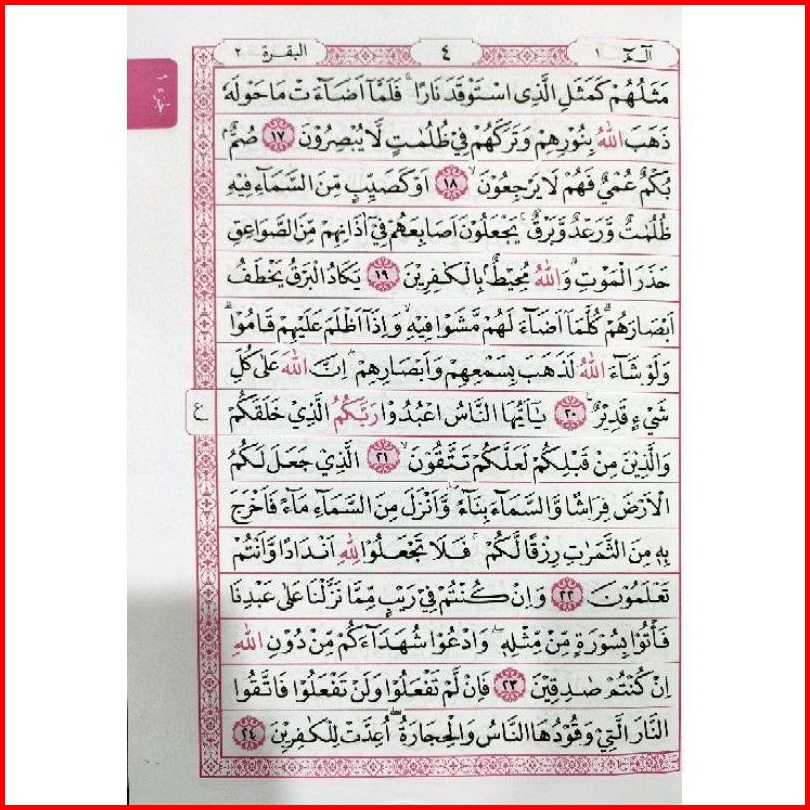 الٓمّٓ ١
٤
البقرة ٢
جزء ١
مَثَلُهُمْ كَمَثَلِ الَّذِى اسْتَوْقَدَ نَارًا ۚ فَلَمَّآ اَضَآءَتْ مَا حَوْلَهٗ
ذَهَبَ اللّٰهُ بِنُوْرِهِمْ وَتَرَكَهُمْ فِيْ ظُلُمٰتٍ لَّا يُبْصِرُوْنَ ١٧ صُمٌّۢ
بُكْمٌ عُمْيٌ فَهُمْ لَا يَرْجِعُوْنَ ۙ ١٨ اَوْ كَصَيِّبٍ مِّنَ السَّمَآءِ فِيْهِ
ظُلُمٰتٌ وَّرَعْدٌ وَّبَرْقٌ ۚ يَجْعَلُوْنَ اَصَابِعَهُمْ فِيْٓ اٰذَانِهِمْ مِّنَ الصَّوَاعِقِ
حَذَرَ الْمَوْتِ ۗ وَاللّٰهُ مُحِيْطٌۢ بِالْكٰفِرِيْنَ ١٩ يَكَادُ الْبَرْقُ يَخْطَفُ
اَبْصَارَهُمْ ۗ كُلَّمَآ اَضَآءَ لَهُمْ مَّشَوْا فِيْهِ ۙ وَاِذَآ اَظْلَمَ عَلَيْهِمْ قَامُوْا ۗ
وَلَوْ شَآءَ اللّٰهُ لَذَهَبَ بِسَمْعِهِمْ وَاَبْصَارِهِمْ ۗ اِنَّ اللّٰهَ عَلٰى كُلِّ
شَيْءٍ قَدِيْرٌ ۚ ٢٠ يٰٓاَيُّهَا النَّاسُ اعْبُدُوْا رَبَّكُمُ الَّذِيْ خَلَقَكُمْ
ع
وَالَّذِيْنَ مِنْ قَبْلِكُمْ لَعَلَّكُمْ تَتَّقُوْنَ ۙ ٢١ الَّذِيْ جَعَلَ لَكُمُ
الْاَرْضَ فِرَاشًا وَّالسَّمَآءَ بِنَآءً ۖ وَّاَنْزَلَ مِنَ السَّمَآءِ مَآءً فَاَخْرَجَ
بِهٖ مِنَ الثَّمَرٰتِ رِزْقًا لَّكُمْ ۚ فَلَا تَجْعَلُوْا لِلّٰهِ اَنْدَادًا وَّاَنْتُمْ
تَعْلَمُوْنَ ٢٢ وَاِنْ كُنْتُمْ فِيْ رَيْبٍ مِّمَّا نَزَّلْنَا عَلٰى عَبْدِنَا
فَأْتُوْا بِسُوْرَةٍ مِّنْ مِّثْلِهٖ ۖ وَادْعُوْا شُهَدَآءَكُمْ مِّنْ دُوْنِ اللّٰهِ
اِنْ كُنْتُمْ صٰدِقِيْنَ ٢٣ فَاِنْ لَّمْ تَفْعَلُوْا وَلَنْ تَفْعَلُوْا فَاتَّقُوا
النَّارَ الَّتِيْ وَقُوْدُهَا النَّاسُ وَالْحِجَارَةُ ۖ اُعِدَّتْ لِلْكٰفِرِيْنَ ٢٤